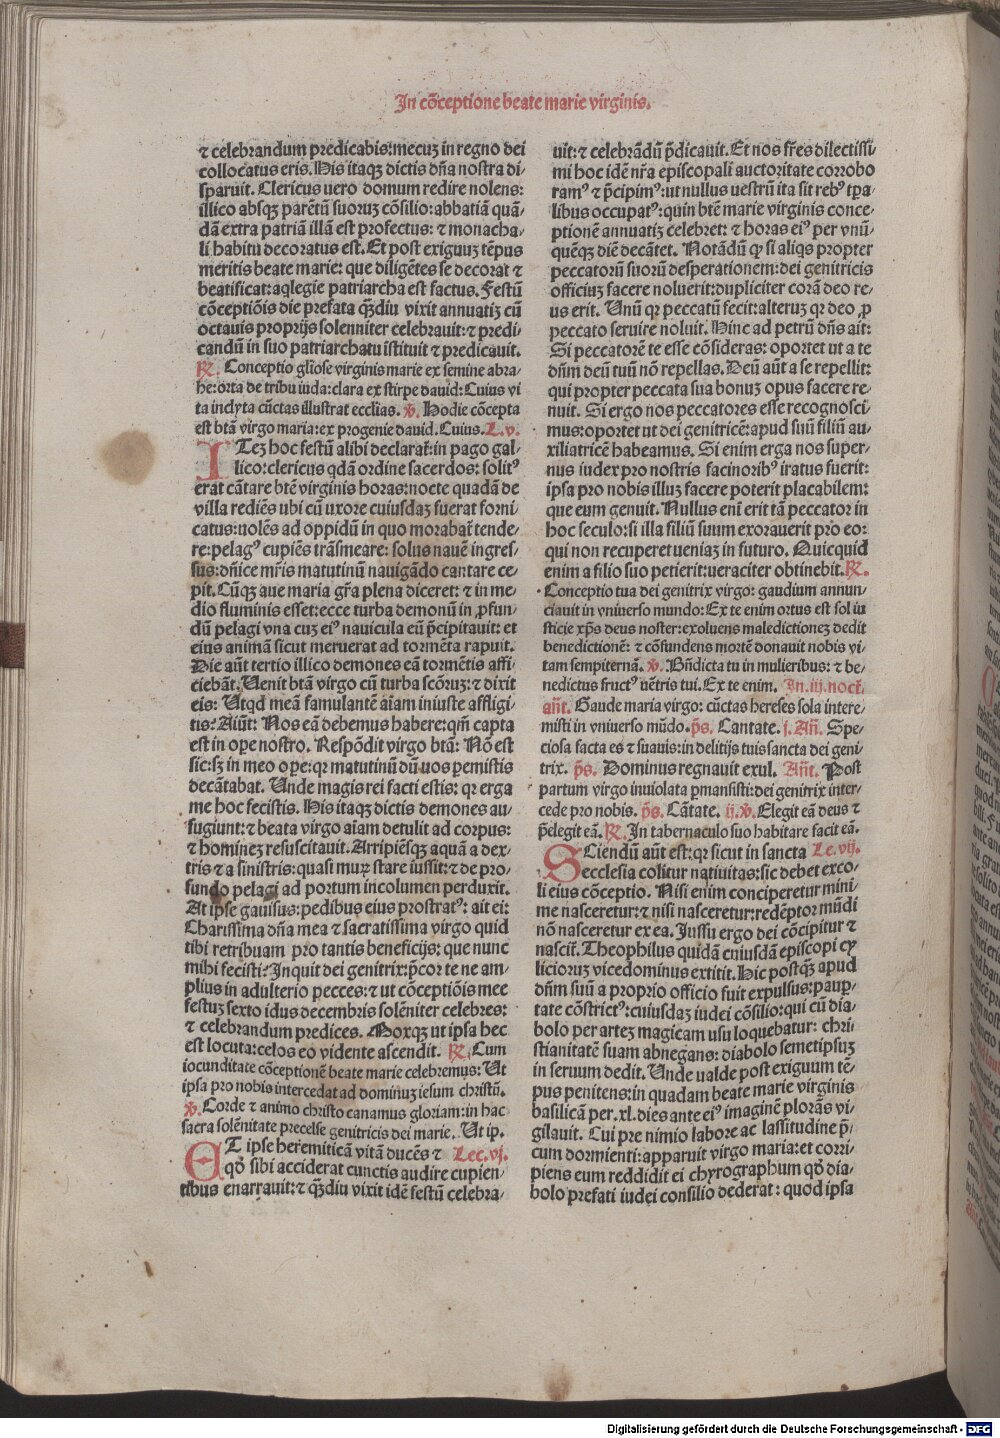 In cōceptione beate marie virginis.
⁊ celebrandum predicabis:mecuʒ in regno dei
collocatus eris. His itaqʒ dictis dña nostra di-
sparuit. Clericus uero domum redire nolens:
illico absqʒ parētū suoruʒ cōsilio:abbatiā quā-
dā extra patriā illā est profectus: ⁊ monacha-
li habitu decoratus est. Et post exiguuʒ tēpus
meritis beate marie: que diligētes se decorat ⁊
beatificat:aqlegie patriarcha est factus. Festū
cōceptiōis die prefata qʒdiu vixit annuatiʒ cū
octauis proprijs solenniter celebrauit:⁊ predi-
candū in suo patriarchatu īstituit ⁊ predicauit.
℟. Conceptio gl̄iose virginis marie ex semine abra-
he:orta de tribu iuda:clara ex stirpe dauid: Cuius vi
ta inclyta cūctas illustrat eccl̄ias. ℣. Hodie cōcepta
est btā virgo maria:ex progenie dauid. Cuius. L. v.
ITeʒ hoc festū alibi declarat̄:in pago gal-
lico:clericus qdā ordine sacerdos: solitꝰ
erat cātare btē virginis horas:nocte quadā de
villa rediēs ubi cū uxore cuiusdaʒ fuerat forni-
catus:nolēs ad oppidū in quo morabat̄ tende-
re:pelagꝰ cupiēs trāsmeare: solus nauē ingres-
sus:dñice mr̄is matutinū nauigādo cantare ce-
pit. Cūqʒ aue maria gr̄a plena diceret: ⁊ in me-
dio fluminis esset:ecce turba demonū in ꝓfun-
dū pelagi vna cuʒ eiꝰ nauicula eū p̄cipitauit: et
eius animā sicut meruerat ad tormēta rapuit.
Die aūt tertio illico demones eā tormētis affi-
ciebāt. Uenit btā virgo cū turba scōruʒ:⁊ dixit
eis: Utqd meā famulantē aīam iniuste affligi-
tis? Aiūt: Nos eā debemus habere:qm̄ capta
est in oꝑe nostro. Respōdit virgo btā: Nō est
sic:sʒ in meo oꝑe:qꝛ matutinū dū uos ꝑemistis
decātabat. Unde magis rei facti estis: qꝛ erga
me hoc fecistis. His itaqʒ dictis demones au-
fugiunt:⁊ beata virgo aīam detulit ad corpus:
⁊ hominez resuscitauit. Arripiēsqʒ aquā a dex-
tris ⁊ a sinistris: quasi muꝝ stare iussit:⁊ de pro-
fundo pelagi ad portum incolumen perduxit.
At ipse gauisus:pedibus eius prostratꝰ: ait ei:
Charissima dña mea ⁊ sacratissima virgo quid
tibi retribuam pro tantis beneficijs: que nunc
mihi fecisti? Inquit dei genitrix:p̄cor te ne am-
plius in adulterio pecces:⁊ ut cōceptiōis mee
festuʒ sexto idus decembris solēniter celebres:
⁊ celebrandum predices. Moxqʒ ut ipsa hec
est locuta:celos eo vidente ascendit. ℟. Cum
iocunditate cōceptionē beate marie celebremus: Ut
ipsa pro nobis intercedat ad dominuʒ iesum christū.
℣. Corde ⁊ animo christo canamus gloriam: in hac
sacra solēnitate precelse genitricis dei marie. Ut ip.
ET ipse heremiticā vitā ducēs ⁊ Lec. vj.
qd̄ sibi acciderat cunctis audire cupien-
tibus enarrauit:⁊ qʒdiu vixit idē festū celebra-
uit:⁊ celebrādū p̄dicauit. Et nos fr̄es dilectissi-
mi hoc idē nr̄a episcopali auctoritate corrobo
ramꝰ ⁊ p̄cipimꝰ:ut nullus uestrū ita sit rebꝰ tꝑa-
libus occupatꝰ:quin btē marie virginis conce-
ptionē annuatiʒ celebret: ⁊ horas eiꝰ per vnū-
quēqʒ diē decātet. Notādū ꝙ si aliqs propter
peccatorū suorū desperationem:dei genitricis
officiuʒ facere noluerit:dupliciter corā deo re-
us erit. Unū qꝛ peccatū fecit:alteruʒ qꝛ deo ꝓ
peccato seruire noluit. Hinc ad petrū dñs ait:
Si peccatorē te esse cōsideras: oportet ut a te
dñm deū tuū nō repellas. Deū aūt a se repellit:
qui propter peccata sua bonuʒ opus facere re-
nuit. Si ergo nos peccatores esse recognosci-
mus:oportet ut dei genitricē:apud suū filiū au-
xiliatricē habeamus. Si enim erga nos super-
nus iudex pro nostris facinoribꝰ iratus fuerit:
ipsa pro nobis illuʒ facere poterit placabilem:
que eum genuit. Nullus eni erit tā peccator in
hoc seculo:si illa filiū suum exorauerit pro eo:
qui non recuperet ueniaʒ in futuro. Quicquid
enim a filio suo petierit:ueraciter obtinebit. ℟.
Conceptio tua dei genitrix virgo: gaudium annun-
ciauit in vniuerso mundo: Ex te enim ortus est sol iu
sticie xp̄s deus noster:exoluens maledictioneʒ dedit
benedictionē: ⁊ cōfundens mortē donauit nobis vi-
tam sempiternā. ℣. Bn̄dicta tu in mulieribus: ⁊ be-
nedictus fructꝰ uētris tui. Ex te enim. In .iij. noct̄.
añt. Gaude maria virgo: cūctas hereses sola intere-
misti in vniuerso mūdo. p̄s. Cantate. j. Añ. Spe-
ciosa facta es ⁊ suauis:in delitijs tuis sancta dei geni
trix. p̄s. Dominus regnauit exul. Añt. Post
partum virgo inuiolata ꝑmansisti:dei genitrix inter-
cede pro nobis. p̄s. Cātate. ij. ℣. Elegit eā deus ⁊
p̄elegit eā. ℟. In tabernaculo suo habitare facit eā.
SCiendū aūt est:qꝛ sicut in sancta Le. vij.
ecclesia colitur natiuitas:sic debet exco-
li eius cōceptio. Nisi enim conciperetur mini-
me nasceretur:⁊ nisi nasceretur:redēptor mūdi
nō nasceretur ex ea. Jussu ergo dei cōcipitur ⁊
nascit̄. Theophilus quidā cuiusdā episcopi cy
licioruʒ vicedominus extitit. Hic postqʒ apud
dñm suū a proprio officio fuit expulsus:pauꝑ-
tate cōstrictꝰ:cuiusdaʒ iudei cōsilio:qui cū dia-
bolo per arteʒ magicam usu loquebatur: chri-
stianitatē suam abnegans: diabolo semetipsuʒ
in seruum dedit. Unde ualde post exiguum tē-
pus penitens:in quadam beate marie virginis
basilicā per .xl. dies ante eiꝰ imaginē plorās vi-
gilauit. Cui pre nimio labore ac lassitudine p̄-
cum dormienti:apparuit virgo maria:et corri-
piens eum reddidit ei chyrographum qd̄ dia-
bolo prefati iudei consilio dederat: quod ipsa
Digitalisierung gefördert durch die Deutsche Forschungsgemeinschaft - DFG